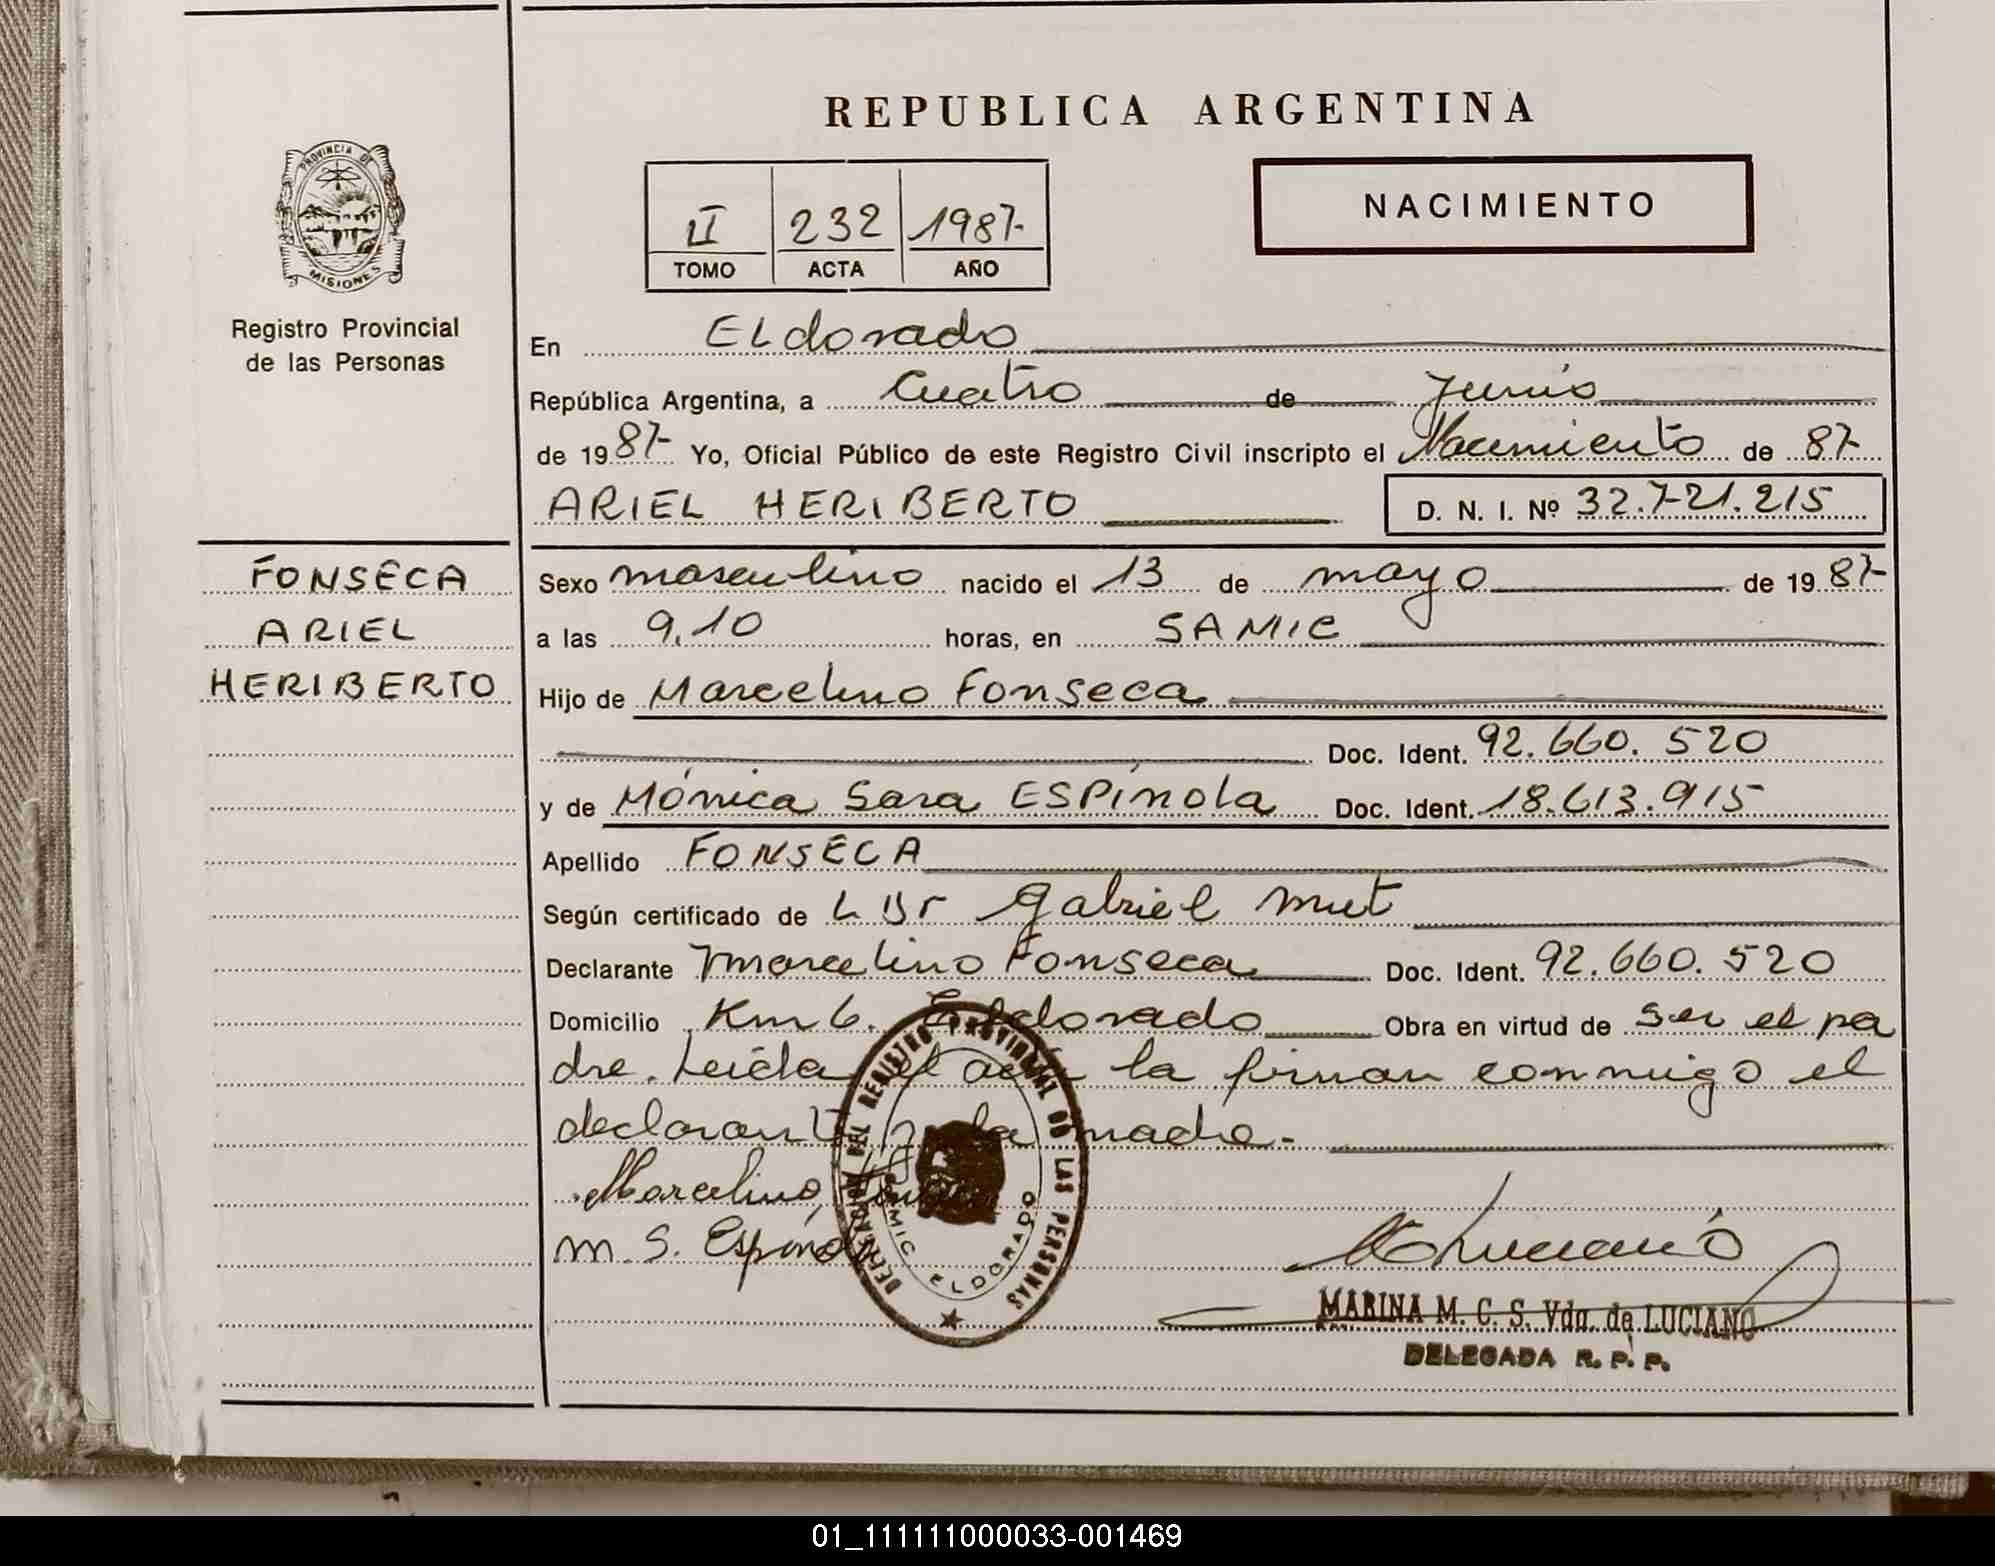 REPUBLICA ARGENTINA
PROVINCIA DE
MISIONES
Registro Provincial
de las Personas
II 232 1987-
TOMO ACTA AÑO
NACIMIENTO
En Eldorado
República Argentina, a Cuatro de Junio
de 1987- Yo, Oficial Público de este Registro Civil inscripto el Nacimiento de 87-
ARIEL HERIBERTO D. N. I. Nº 32.721.215
FONSECA
ARIEL
HERIBERTO
Sexo masculino nacido el 13 de mayo de 1987-
a las 9.10 horas, en SAMIC
Hijo de Marcelino Fonseca
Doc. Ident. 92.660.520
y de Mónica Sara ESPÍNOLA Doc. Ident. 18.613.915
Apellido FONSECA
Según certificado de Dr Gabriel
Declarante Marcelino Fonseca Doc. Ident. 92.660.520
Domicilio Km 6. Eldorado Obra en virtud de ser el pa
dre. Leída el acta la firman conmigo el
declarante y la madre.-
Marcelino
M. S. Espínola
DELEGACION DEL REGISTRO PROVINCIAL DE LAS PERSONAS
SAMIC ELDORADO
MARINA M. C. S. Vda. de LUCIANO
DELEGADA R. P. P.
01_111111000033-001469